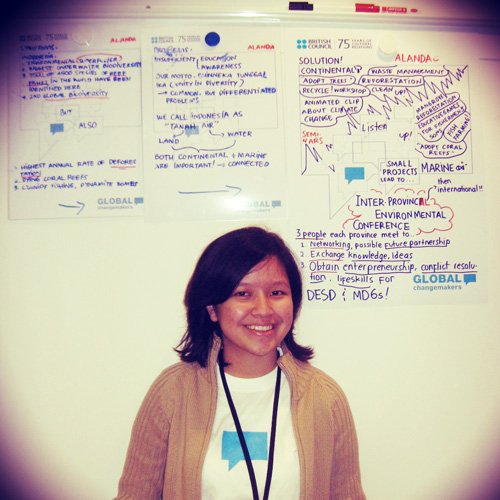 BRITISH COUNCIL
ALANDA
1. BIGGEST UNDERWATER BIODIVERSITY
FISHES IN THE WORLD HAVE BEEN
IDENTIFIED HERE
4. 2ND GLOBAL Biodiversity
BUT
ALSO
1. HIGHEST ANNUAL RATE OF DEFORES
TATION
2. DYING CORAL REEFS
3. DYNAMITE BOMBS
GLOBAL
changemakers
BRITISH COUNCIL
75
ALANDA
PROBLEMS:
INSUFFICIENT EDUCATION
& AWARENESS
OUR MOTTO: BHINNEKA TUNGGAL
IKA (UNITY IN DIVERSITY)
→ COMMON, BUT DIFFERENTIATED
PROBLEMS
WE CALL INDONESIA AS
"TANAH AIR"
LAND
WATER
BOTH CONTINENTAL & MARINE
ARE IMPORTANT! → CONNECTED
GLOBAL
changemakers
BRITISH COUNCIL
75 YEARS OF CULTURAL RELATIONS
ALANDA
SOLUTION!
CONTINENTAL
WASTE MANAGEMENT
ADOPT TREES
REFORESTATION
RECYCLE! WORKSHOP
CLEAN UP!
ANIMATED CLIP
ABOUT CLIMATE
CHANGE
Listen
up!
SEMI-
NARS
MANGROVE
REFORESTATION
EDUCATIVE GAMES
FOR FISHERMEN'S
SONS
FISH
FARMING!
"ADOPT CORAL
REEFS"
MARINE
SMALL
PROJECTS
LEAD TO...
then
"international!"
INTER-PROVINCIAL
ENVIRONMENTAL
CONFERENCE
3 people each province meet to...
1. Networking, possible future partnership
2. Exchange knowledge, ideas
3. Obtain enterpreneurship, conflict resolu-
tion, lifeskills FOR
DESD & MDGs!
GLOBAL
changemakers